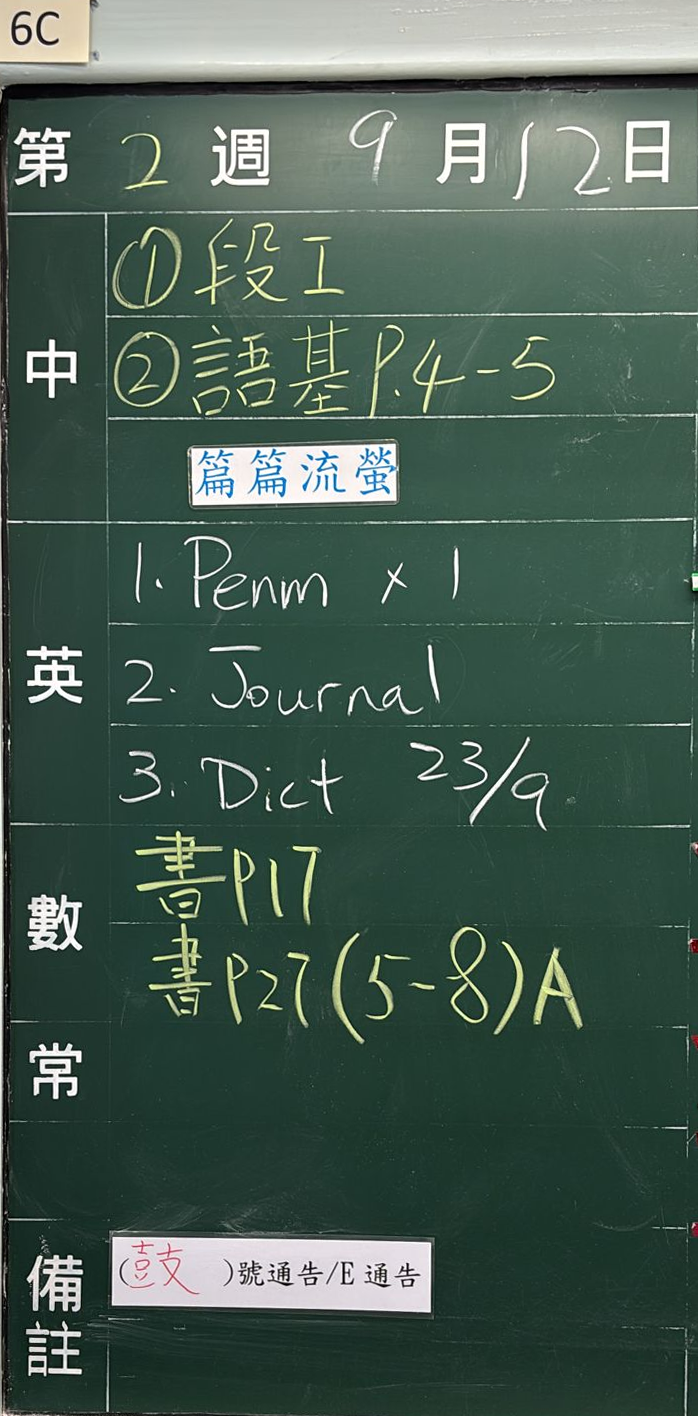 6C
第 2 週 9 月 12 日
中
①段工
②語基 P.4-5
篇篇流螢
英
1. Penm × 1
2. Journal
3. Dict 23/9
數
書P17
書P27(5-8)A
常
備註
(鼓 )號通告/E通告